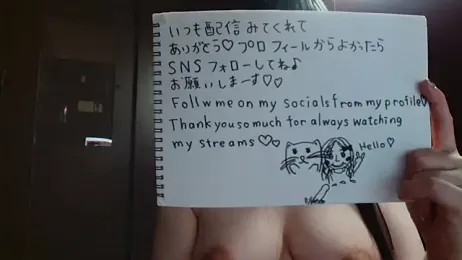 いつも配信みてくれて
ありがとう♡プロフィールからよかったら
SNSフォローしてね♪
お願いしまーす♡♡
Follwme on my socials from my profile♡
Thankyousomuch for always watching
my streams♡♡
Hello♡